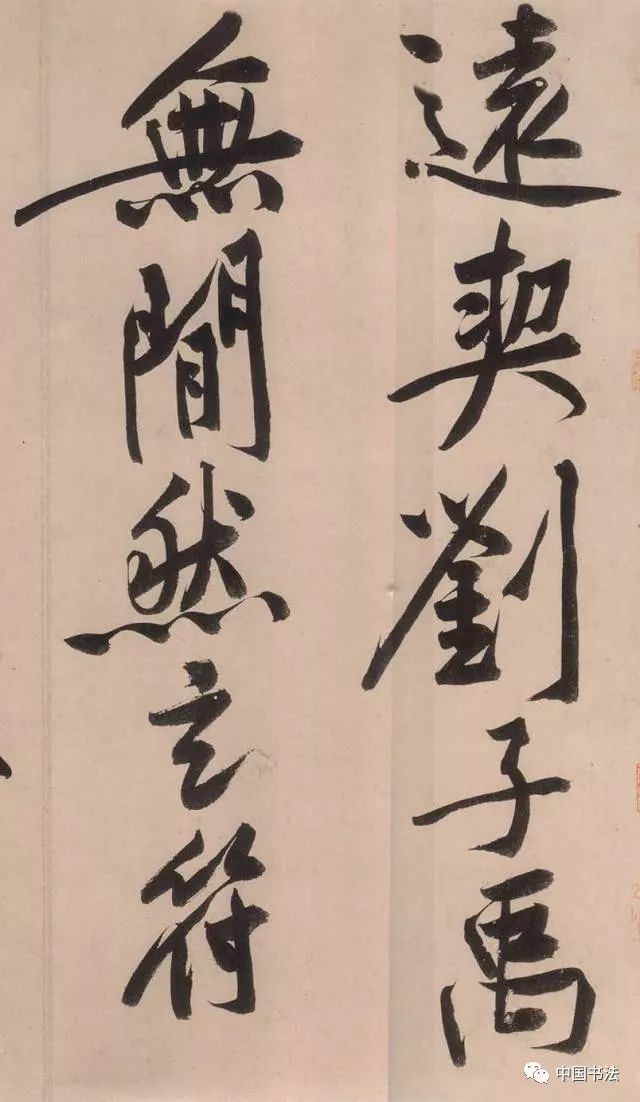 遠契劉子禹
無間然玄符
中国书法